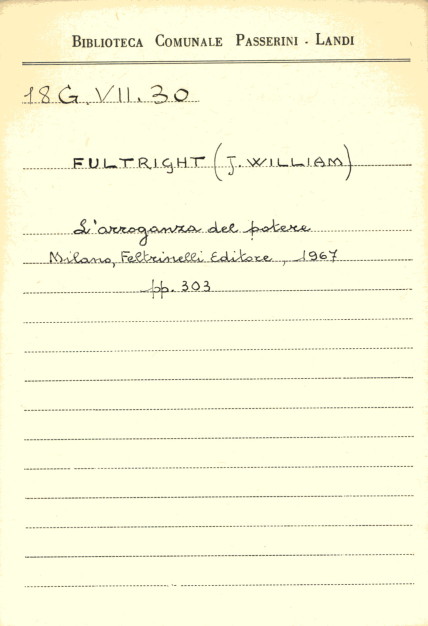 BIBLIOTECA COMUNALE PASSERINI - LANDI
18G.VII.30
FULTRIGHT (J. WILLIAM)
L'arroganza del potere
Milano, Feltrinelli Editore, 1967
pp. 303